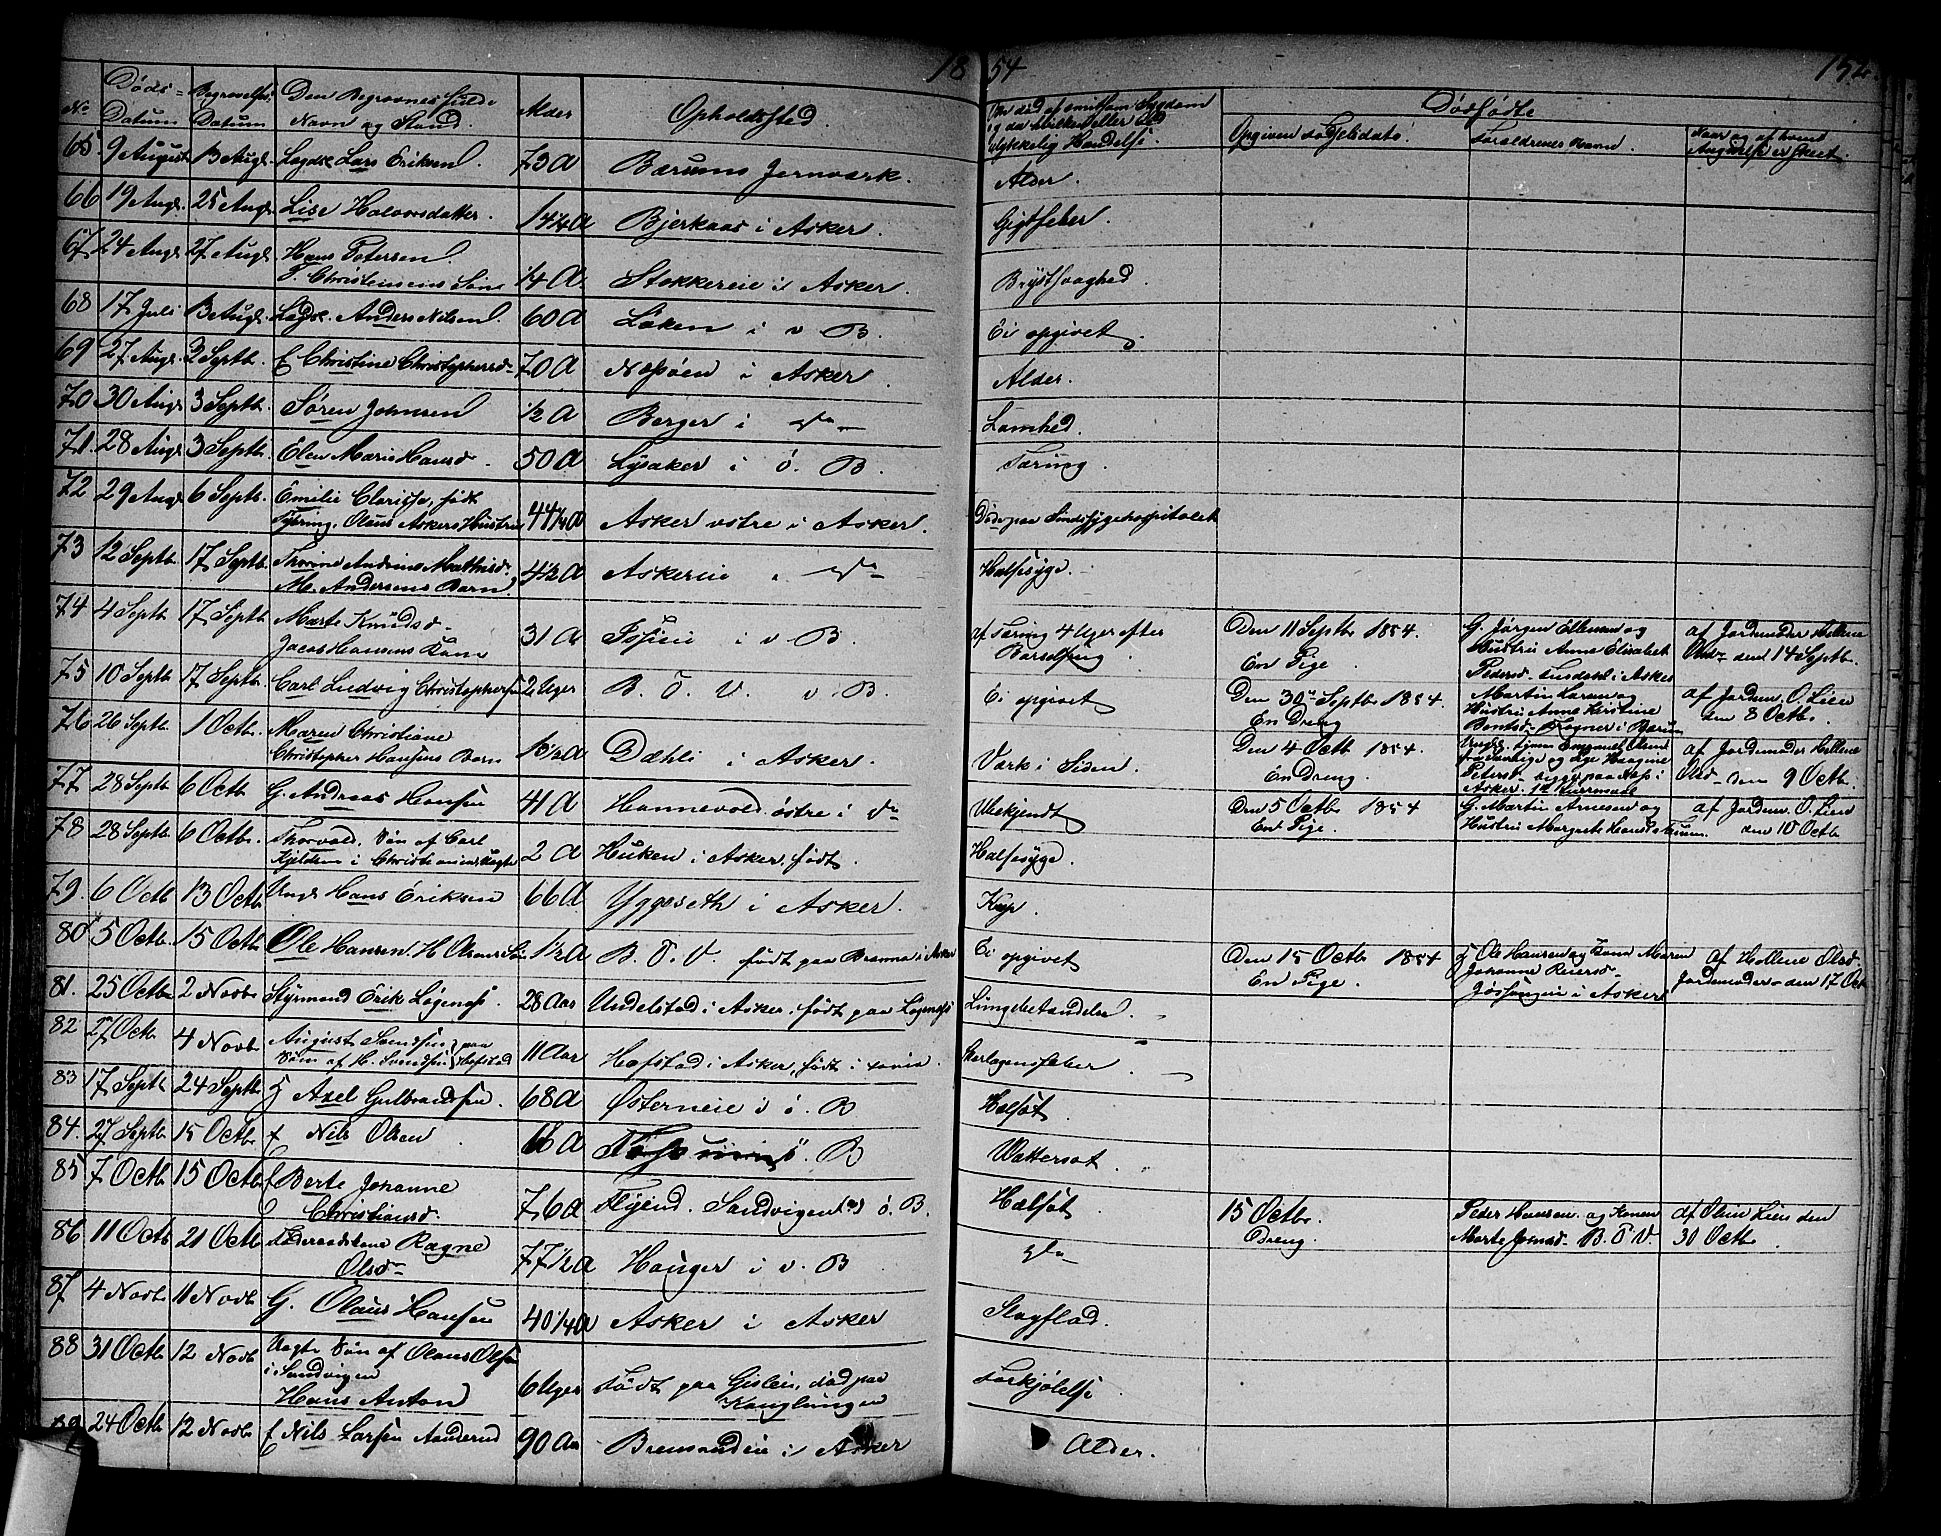 18 54 152.
No. Døds-Datum Begravelses Datum Den Begravnes fulde Navn og Stand. Alder Opholdssted. Om død af smitsom Sygdom og da hvilken eller ved ulykkelig Hændelse. Dødfødte
Opgiven Fødselsdato. Forældrenes Navne. Naar og af hvem Angivelse er skeet.
65 9 August 13 Augt. Logdsk. Lars Eriksen. 73 A Bærums Jernværk. Alder.
66 19 Augt. 25 Augt. Lise Halvorsdatter. 1 3/4 A Bjerkaas i Asker. Gigtfeber.
67 24 Augt. 27 Augt. Hans Petersen
P. Christensens Søn 14 A Stokkereie i Asker. Brystsvaghed.
68 17 Juli 13 Augt. Logdsk. Anders Nilsen. 60 A Løken i v. B. Ei opgivet.
69 27 Augt. 3 Septb. f Christine Christophersd- 70 A Næsøen i Asker. Alder.
70 30 Augt. 3 Septb. Søren Johnsen 1/2 A Berger i do Lamhed.
71. 28 Augt. 3 Septb. Elen Marie Hansd. 50 A Lysaker i ö. B. Tæring.
72 29 Augt. 6 Septb. Emilie Clarisse, født
Tjering. Olaus Askers Hustru 44 1/4 A Asker østre i Asker. Døde paa Sindssygehospitalet
73 12 Septb. 17 Septb. Thorine Andrine Mathisd.
M. Andersens Barn 4 1/2 A Askereie " do Halssyge.
74 4 Septb 17 Septb Marte Knudsd-
Jacob Hansens Kone 31 A Fosseie i v. B. af Tæring 4 Uger efter
Barselseng. Den 11 Septbr 1854.
En Pige. G. Jørgen Ellensen og
Hustru Anne Elisabet
Pedersd- i Asker af Jordemoder Hellene
Olsd- den 14 Septb.
75 10 Septb. 17 Septb. Carl Ludvig Christophersen 2 Uger B. ö. V. v. B Ei opgivet Den 30te Septbr 1854.
En Dreng Martin Larsen og
Hustru Anne Kirstine
Berntsd- Fogner i Bærum af Jordem. O. Lien
den 8 Octbr.
76 26 Septb. 1 Octb. Maren Christiane
Christopher Hansens Barn 1 1/2 A Dæhli i Asker. Værk i Siden. Den 4 Octb 1854.
En Dreng. Asker. af Jordemoder Hellene
Olsd- den 9 Octb.
77 28 Septb 6 Octb G. Andreas Hansen 41 A Hannevold østre i do Ubekjendt Den 5 Octbr 1854
En Pige. G. Martin Arnesen og
Hustru Margrete Hansd. af Jordem. O. Lien
den 10 Octb.
78 28 Septb 6 Octbr. Thorvald, Søn af Carl
Kjelden i Christiania, uægte 2 A Huken i Asker, født. Halssyge.
79. 6 Octb 13 Octb Ungk Hans Eriksen 66 A. Yggeseth i Asker. Krop.
80 5 Octb. 15 Octb. Ole Hansen. H. Olsens Søn 1 1/2 A B. ö. V. født paa Brænna i Asker Ei opgivet Den 15 Octbr 1854
En Pige. Ole Hansen og Kone Maren
Johanne Reiersd-
i Asker af Hellene Olsd.
Jordemoder- den 17 Oct
81. 25 Octb. 2 Novb. Styrmand Erik Løgenæs. 28 Aar Undelstad i Asker, født paa Løgenæs Lungebetændelse.
82 27 Octb. 4 Novb August Svendsen, paa
Søn af H. Svendsen, Hofstad 11 Aar Hofstad i Asker, født i Skarlagensfeber.
83 17 Septb 24 Septb Axel Gulbrandsen. 68 A Østerneie i ö. B Halssot.
84. 27 Septb 15 Octb. f Nils Olsen 66 A ö. B Wattersot.
85 7 Octb 15 Octb. f Berte Johanne
Christiansd. 76 A Flyend. Sandvigen i ö. B. Halsot. 15 Octbr.
Dreng. Peder Hansen og Konen
Marte B. ö. V. af Olin Lien den
30 Octbr.
86 11 Octb 21 Octb Ragne
Olsd- 77 1/2 A Hauger i v. B do
87. 4 Novb. 11 Novb. G. Olaus Hansen 40 1/4 A Asker i Asker Slagflod.
88 31 Octb. 12 Novb Uægte Søn af Olaus Olsen
i Sandvigen
Hans Anton 6 Uger Født paa Gisleie, død paa
Kanglungen Forkjølelse
89. 24 Octb. 12 Novb. f Nils Larsen Aanderud 90 Aar Bremsandeie i Asker Alder.